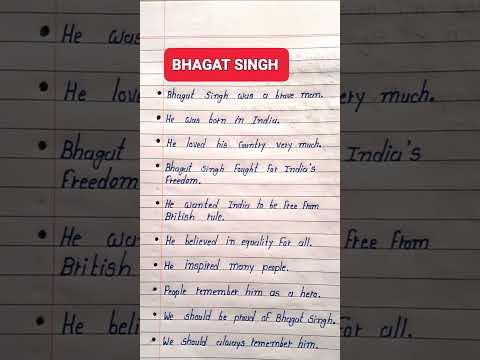 BHAGAT SINGH
• Bhagat Singh was a brave man.
• He was born in India.
• He loved his Country very much.
• Bhagat Singh Fought For India's
Freedom.
• He wanted India to be Free From
British rule.
• He believed in equality For all.
• He inspired many people.
• People remember him as a hero.
• We should be proud of Bhagat Singh.
• We should always remember him.
• He was
• He lov
• Bhagat
Freedom
• He wan
British
• He beli
ery much.
India's
Free From
For all.